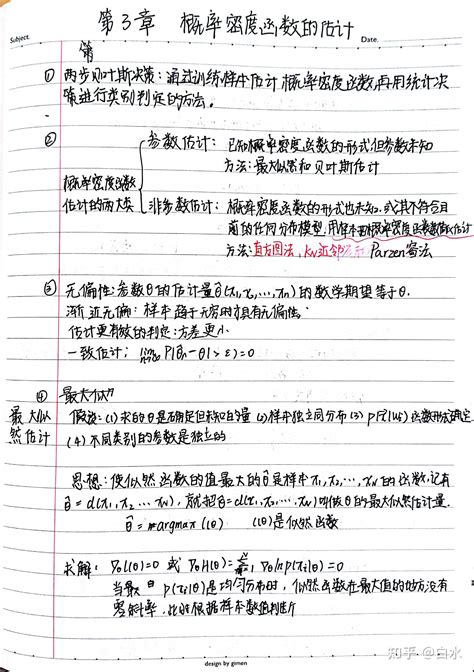 第3章 概率密度函数的估计
Subject.
Date.
第
① 两步贝叶斯决策：通过训练样本估计概率密度函数,再用统计决
策进行类别判定的方法。
②
概率密度函数
估计的两大类
参数估计：已知概率密度函数的形式但参数未知
方法：最大似然和贝叶斯估计
非参数估计：概率密度函数的形式也未知。或其不符合目
前的任何分布模型。用样本把概率密度函数数值化估计
方法：直方图法，kN近邻 Parzen窗法
③ 无偏性：参数θ的估计量θ̂(x₁,x₂,…,xn)的数学期望等于θ.
渐近无偏：样本趋于无穷时具有无偏性.
估计更有效的判定：方差更小
一致估计： lim P(|θ̂n-θ|>ε)=0
④ 最大似
最大似
然估计
假设：(1)求的θ是确定但未知的量 (2)样本独立同分布 (3) 函数形式确定
(4)不同类别的参数是独立的
思想：使似然函数的值最大的θ̂是样本x₁,x₂,…,xN的函数,记有
θ̂=d(x₁,x₂…xN), 就把θ̂=d(x₁,x₂…xN)叫做θ的最大似然估计量.
θ̂=argmax l(θ) l(θ)是似然函数
求解： ∇θl(θ)=0 或 ∇θH(θ)=∑∇θlnp(xi|θ)=0
当最 θ p(xi|θ)是均匀分布时，似然函数在最大值的地方没有
零斜率，此时根据样本数值判断
design by gimen
知乎 @白水